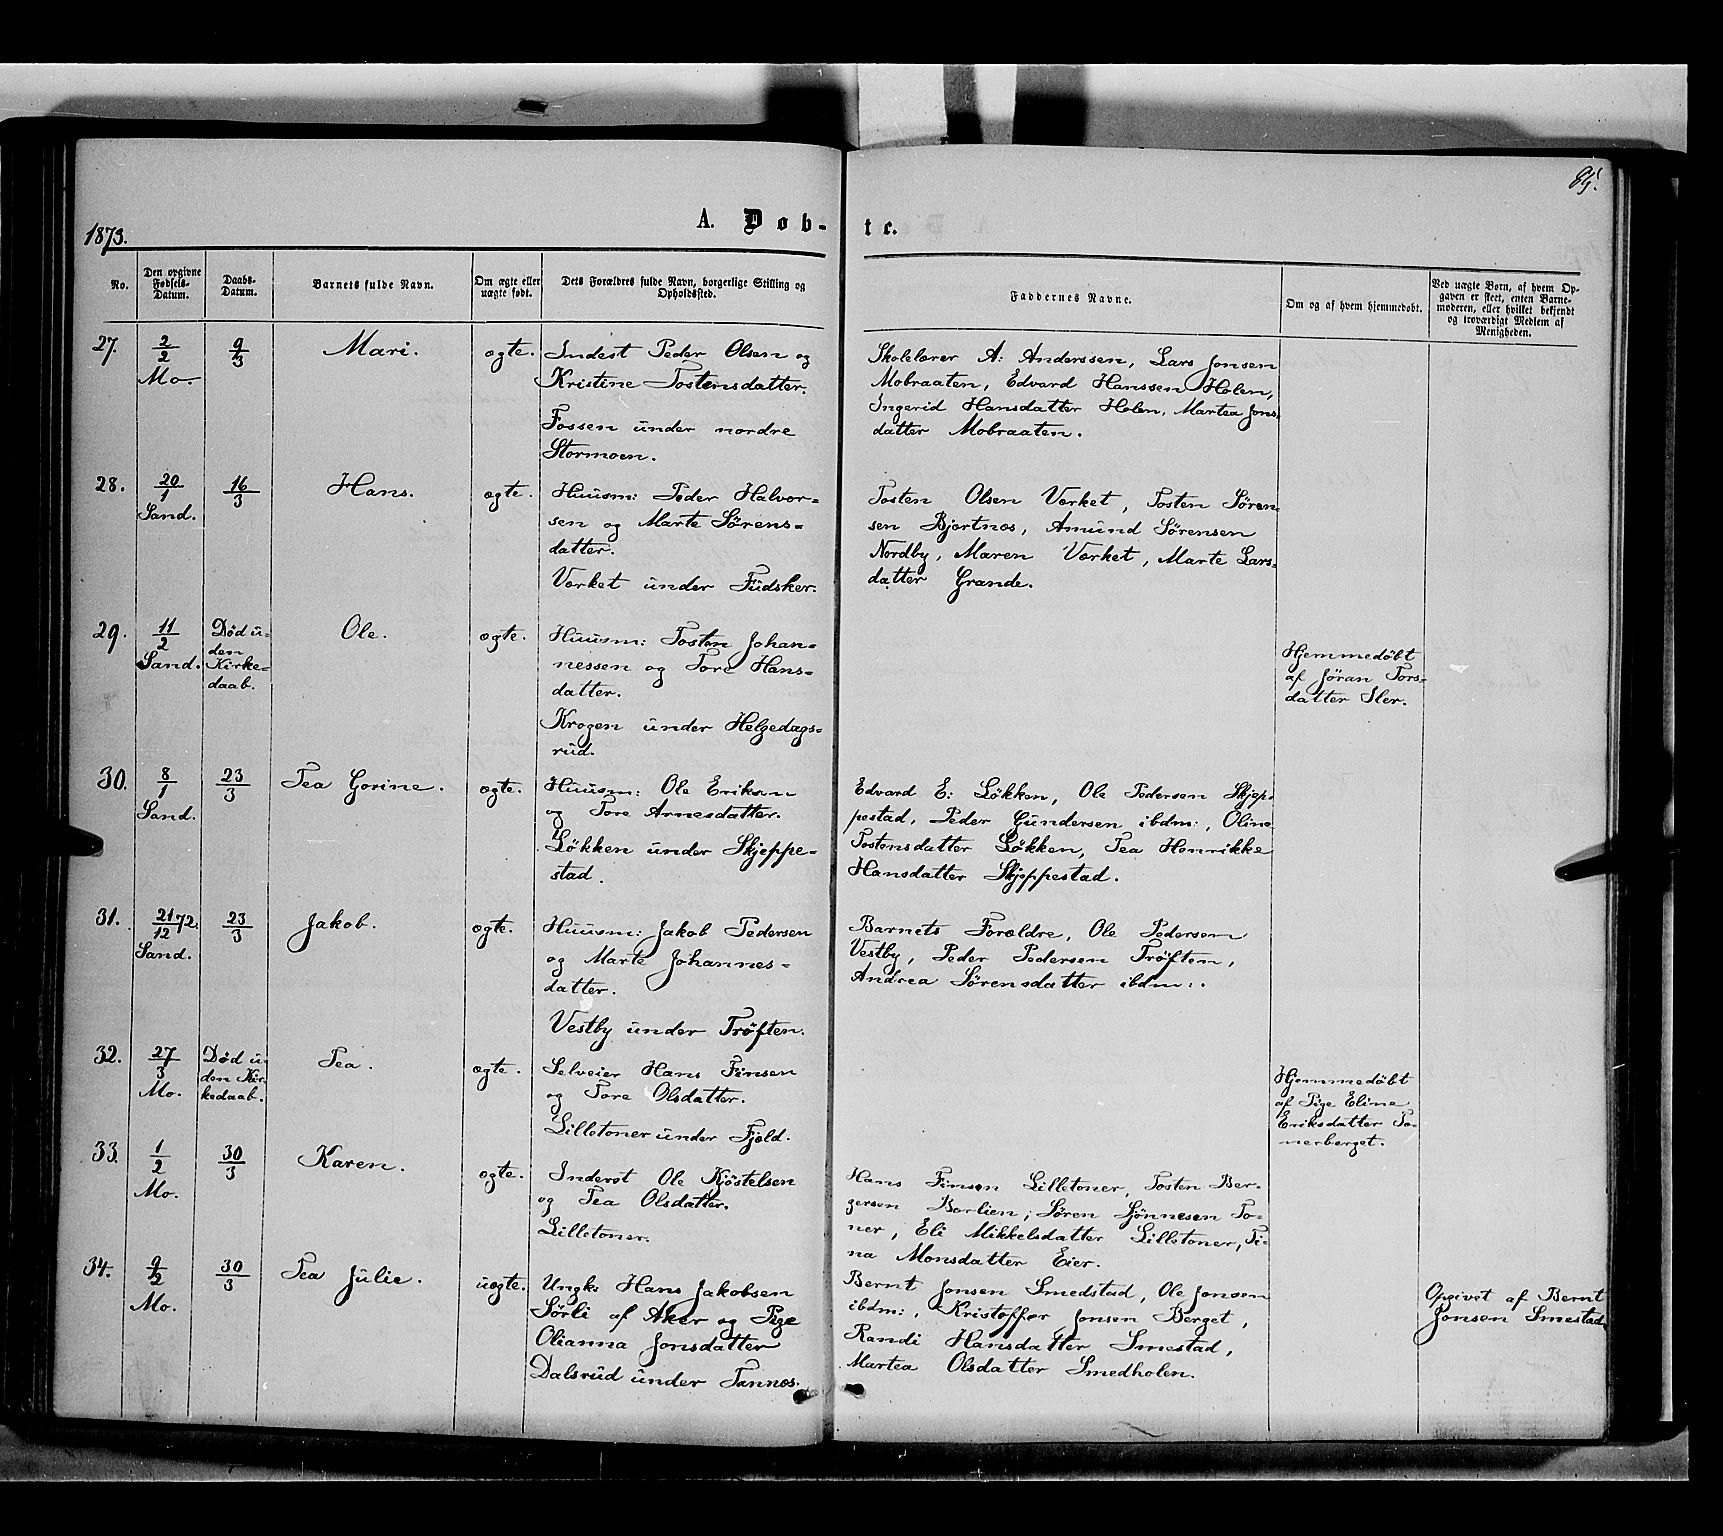 85.
1873.
A. Døb-
te.
No.
Den opgivne Fødsels-Datum.
Daabs-Datum.
Barnets fulde Navn.
Om ægte eller uægte født.
Dets Forældres fulde Navn, borgerlige Stilling og Opholdssted.
Faddernes Navne.
Om og af hvem hjemmedøbt.
Ved uægte Børn, af hvem Op-
gaven er skeet, enten Barne-
moderen, eller hvilket bekjendt
og troværdigt Medlem af
Menigheden.
27.
2/2
Mo.
9/3
Mari.
ægte.
Inderst Peder Olsen og
Kristine Tostensdatter.
Fossen under nordre
Stormoen.
Skolelærer A: Anderssen, Lars Jonsen
Mobraaten, Edvard Hanssen Holen,
Ingerid Hansdatter Holen, Martea Jons-
datter Mobraaten.
28.
20/1
Sand.
16/3
Hans.
ægte.
Huusm: Peder Halvor-
sen og Marte Sørens-
datter.
Værket under Fudsker.
Tosten Olsen Værket, Tosten Søren-
sen Bjørtnæs, Amund Sørensen
Nordby, Maren Værket, Marte Lars-
datter Grande.
29.
11/2
Sand.
Død u-
den
Kirke-
daab.
Ole.
ægte.
Huusm: Tosten Johan-
nessen og Tore Hans-
datter.
Krogen under Helgedags-
rud.
Hjemmedøbt
af Jøran Tors-
datter Sler.
30.
8/1
Sand.
23/3
Tea Gorine.
ægte.
Huusm: Ole Eriksen
og Tore Arnesdatter.
Løkken under Skjeppe-
stad.
Edvard E: Løkken, Ole Pedersen Skjep-
pestad, Peder Gundersen ibdm:, Oline
Tostensdatter Løkken, Tea Henrikke
Hansdatter Skjeppestad.
31.
21/12 72.
Sand.
23/3
Jakob.
ægte.
Huusm: Jakob Pedersen
og Marte Johannes-
datter.
Vestby under Trøften.
Barnets Forældre, Ole Pedersen
Vestby, Peder Pedersen Trøften,
Andrea Sørensdatter ibdm:.
32.
27/3
Mo.
Død u-
den Kir-
kedaab.
Tea.
ægte.
Selveier Hans Finsen
og Tore Olsdatter.
Lilletoner under Fjeld.
Hjemmedøbt
af Pige Eline
Eriksdatter To-
nerberget.
33.
1/2
Mo.
30/3
Karen.
ægte.
Inderst Ole Kjøstelsen
og Tea Olsdatter.
Lilletoner.
Hans Finsen Lilletoner, Tosten Ber-
gersen Børlien, Søren Sjønnesen To-
ner, Eli Mikkelsdatter Lilletoner, Ti-
na Monsdatter Eier.
34.
9/2
Mo.
30/3
Tea Julie.
uægte.
Ungk: Hans Jakobsen
Sørli af Aker og Pige
Olianna Jonsdatter
Dalsrud under Tannæs.
Bernt Jonsen Smedstad, Ole Jonsen
ibdm:, Kristoffer Jonsen Berget,
Randi Hansdatter Smestad,
Martea Olsdatter Smedholen.
Opgivet af Bernt
Jonsen Smestad.